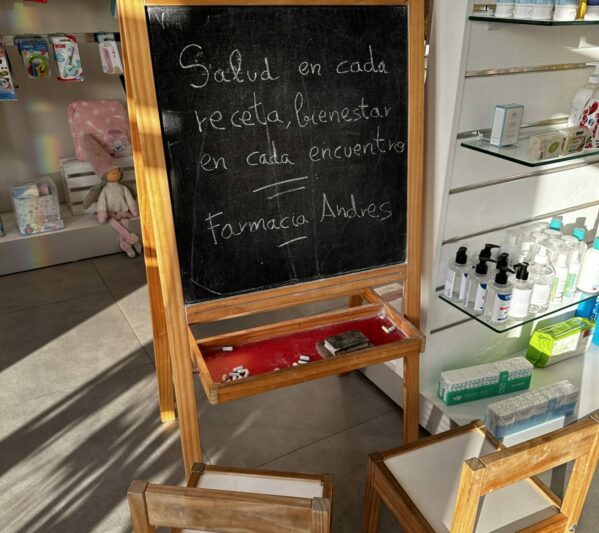 Salud en cada
receta, bienestar
en cada encuentro
Farmacia Andres